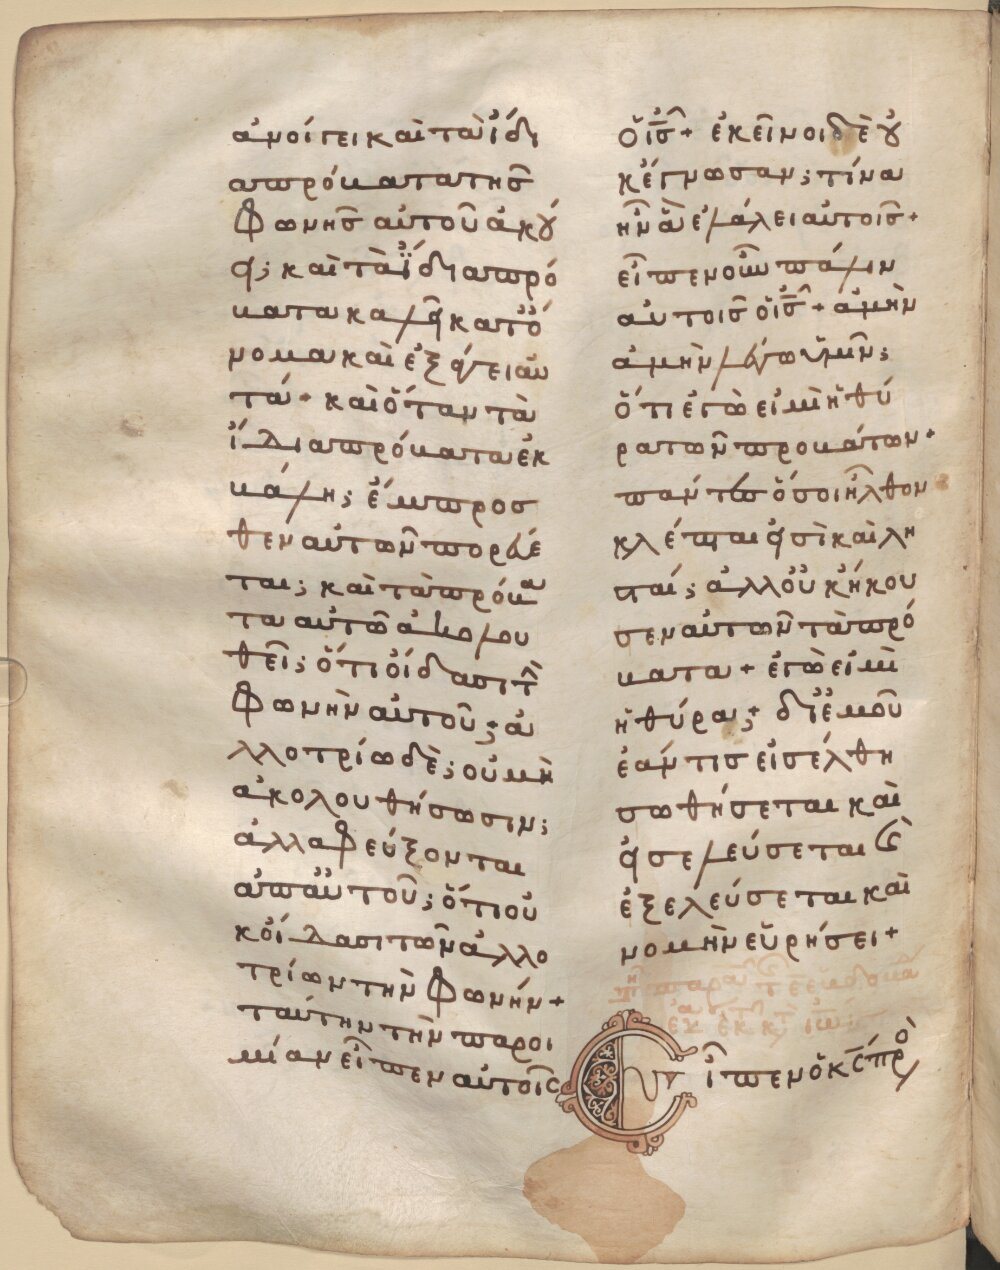 ἀνοίγει καὶ τὰ ἴδι
α πρόβατα τῆς
φωνῆς αὐτοῦ ἀκού
ει; καὶ τὰ ἴδια πρό
βατα καλεῖ κατ' ὄ
νομα καὶ ἐξάγει αὐ
τά + καὶ ὅταν τὰ
ἴδια πρόβατα ἐκ
βάλη; ἔμπροσ
θεν αὐτῶν πορεύε
ται; καὶ τὰ πρόβα
τα αὐτῶ ἀκολου
θεῖ; ὅτι οἴδασι τὴν
φωνὴν αὐτοῦ; ἀ
λλοτρίω δὲ; οὐ μὴ
ἀκολουθήσωσιν;
ἀλλὰ φεύξονται
ἀπ' αὐτοῦ; ὅτι οὐ
κ οἴδασι τῶν ἀλλο
τρίων τὴν φωνήν +
ταύτην τὴν παροι
μίαν εἶπεν αὐτοῖς
ὁ ις + ἐκεῖνοι δὲ οὐ
κ ἔγνωσαν; τίνα
ἦν ἃ ἐλάλει αὐτοῖς +
εἶπεν οὖν πάλιν
αὐτοῖς ὁ ις + ἀμὴν
ἀμὴν λέγω ὑμῖν;
ὅτι ἐγώ εἰμι ἡ θύ
ρα τῶν προβάτων +
πάντες ὅσοι ἦλθον
κλέπται εἰσὶ καὶ λη
σταί; ἀλλ' οὐκ ἤκου
σεν αὐτῶν τὰ πρό
βατα + ἐγώ εἰμι
ἡ θύρα; + δι' ἐμοῦ
ἐάν τις εἰσέλθη
σωθήσεται καὶ
εἰσελεύσεται καὶ
ἐξελεύσεται καὶ
νομὴν εὑρήσει +
ἐκ
Εἶπεν ὁ κς πρὸ